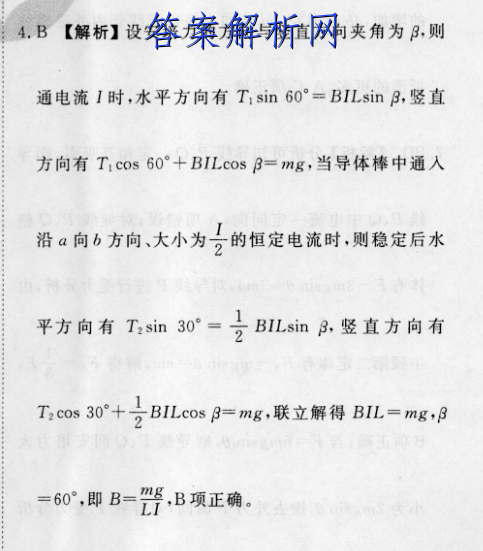 答案解析网
4. B 【解析】设安培力的方向与竖直方向夹角为 β,则
通电流 I 时,水平方向有 T₁sin 60°=BILsin β,竖直
方向有 T₁cos 60°+BILcos β=mg,当导体棒中通入
沿 a 向 b 方向、大小为 I/2 的恒定电流时,则稳定后水
平方向有 T₂sin 30° = 1/2 BILsin β,竖直方向有
T₂cos 30°+1/2 BILcos β=mg,联立解得 BIL=mg,β
=60°,即 B=mg/LI,B 项正确。